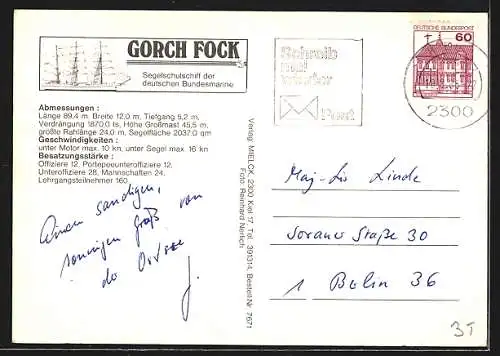 GORCH FOCK
Segelschulschiff der
deutschen Bundesmarine
Abmessungen :
Länge 89,4 m. Breite 12,0 m, Tiefgang 5,2 m,
Verdrängung 1870,0 ts, Höhe Großmast 45,5 m,
größte Rahlänge 24,0 m, Segelfläche 2037,0 qm
Geschwindigkeiten :
unter Motor max. 10 kn, unter Segel max. 16 kn
Besatzungsstärke :
Offiziere 12, Portepeeunteroffiziere 12,
Unteroffiziere 28, Mannschaften 24,
Lehrgangsteilnehmer 160.
Einen sandigen,
sonnigen Gruß von
der Ostsee
J.
Verlag: MIELCK, 2300 Kiel 17, Tel. 391314, Bestell-Nr. 7671
Foto: Reinhard Nerlich
Schreib
mal
wieder
Post
DEUTSCHE BUNDESPOST
60
2300
Maj-Lis Linde
Sorauer Straße 30
1 Berlin 36
3T